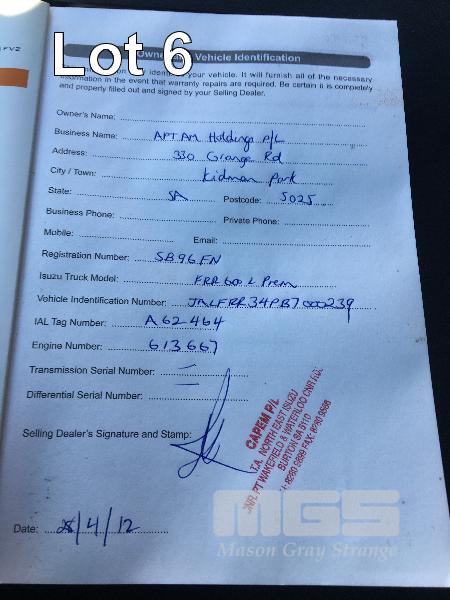 FVZ
Lot 6
Owner Vehicle Identification
your vehicle. It will furnish all of the necessary
information in the event that warranty repairs are required. Be certain it is completely
and properly filled out and signed by your Selling Dealer.
Owner's Name:
Business Name: APTAM Holdings P/L
Address: 330 Grange Rd
City / Town: Kidman Park
State: SA Postcode: 5025
Business Phone: Private Phone:
Mobile: Email:
Registration Number: SB96FN
Isuzu Truck Model: FRR 600 L Prem
Vehicle Indentification Number: JALFRR34PB7000239
IAL Tag Number: A62464
Engine Number: 613667
Transmission Serial Number:
Differential Serial Number:
Selling Dealer's Signature and Stamp:
CAPEM P/L
T.A. NORTH EAST ISUZU
CNR. PT WAKEFIELD & WATERLOO CNR RD.
BURTON SA 5110
: 8280 9899 FAX: 8280 9888
Date: /4/12
MGS
Mason Gray Strange